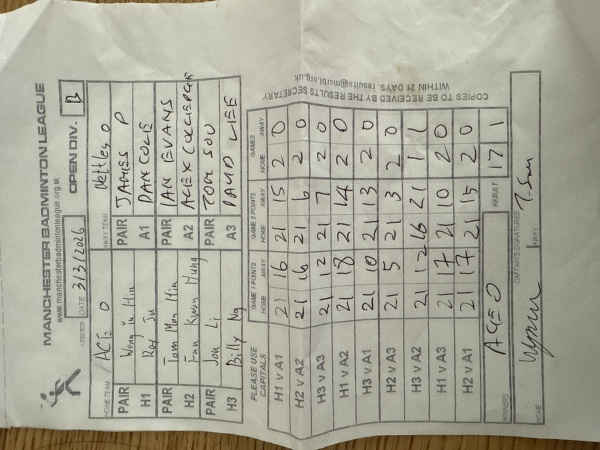 MANCHESTER BADMINTON LEAGUE
www.manchesterbadmintonleague.org.uk
DATE 3/3/2026 OPEN DIV. B
HOME TEAM ACE O AWAY TEAM Nettley O
PAIR PAIR JAMES P
H1 A1 DAN COLE
PAIR Tom Man Hin PAIR IAN EVANS
H2 Fan Kwan Hung A2
PAIR Jon Li PAIR TOM SOU
H3 Billy Ng A3 DAVID LEE
PLEASE USE CAPITALS GAME 1 POINTS GAME 2 POINTS GAMES
HOME AWAY HOME AWAY HOME AWAY
H1 V A1 21 16 21 15 2 0
H2 V A2 21 16 21 6 2 0
H3 V A3 21 12 21 7 2 0
H1 V A2 21 18 21 14 2 0
H3 V A1 21 10 21 13 2 0
H2 V A3 21 5 21 3 2 0
H3 V A2 21 12 16 21 1 1
H1 V A3 21 17 21 10 2 0
H2 V A1 21 17 21 15 2 0
WINNERS ACE O RESULT 17 1
CAPTAINS SIGNATURES
HOME AWAY
COPIES TO BE RECEIVED BY THE RESULTS SECRETARY
WITHIN 21 DAYS. results@mcrbl.org.uk